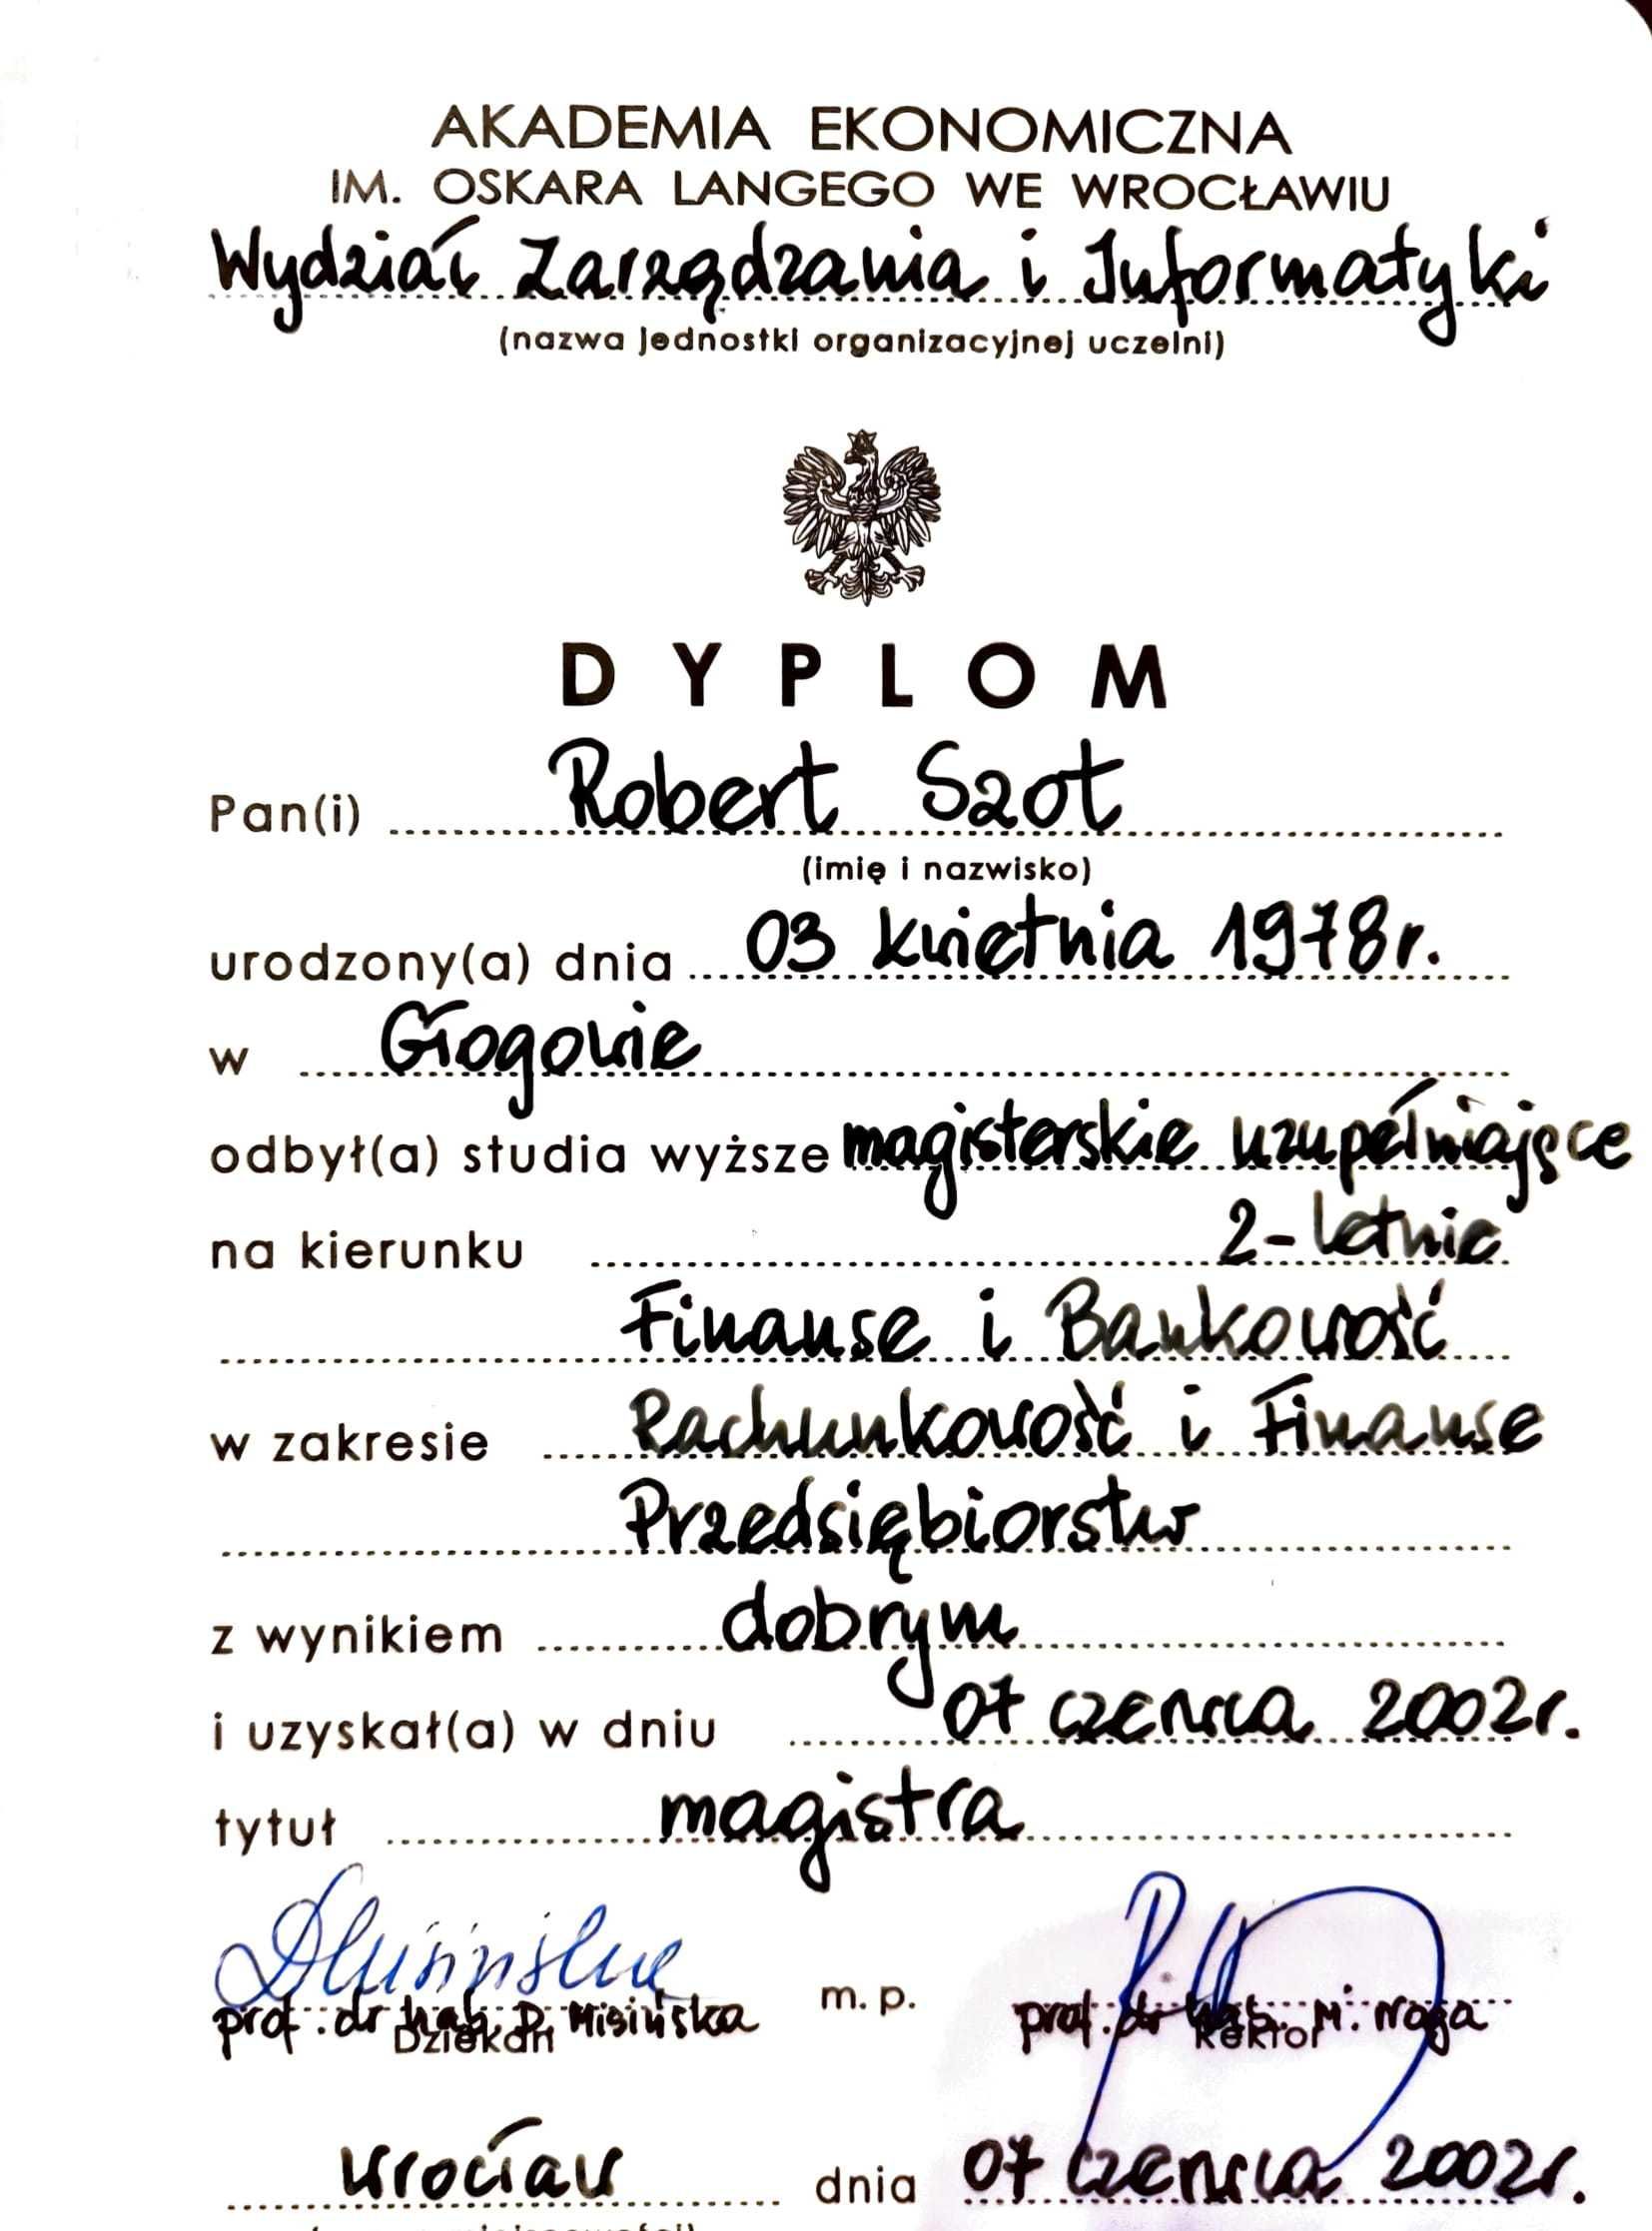 AKADEMIA EKONOMICZNA
IM. OSKARA LANGEGO WE WROCŁAWIU
Wydział Zarządzania i Informatyki
(nazwa jednostki organizacyjnej uczelni)
DYPLOM
Pan(i) Robert Szot
(imię i nazwisko)
urodzony(a) dnia 03 kwietnia 1978r.
w Głogowie
odbył(a) studia wyższe magisterskie uzupełniające
na kierunku 2-letnie
Finanse i Bankowość
w zakresie Rachunkowość i Finanse
Przedsiębiorstw
z wynikiem dobrym
i uzyskał(a) w dniu 07 czerwca 2002r.
tytuł magistra
prof. dr hab. D. Misińska m. p. prof. dr hab. M. Noga
Dziekan Rektor
Wrocław dnia 07 czerwca 2002r.